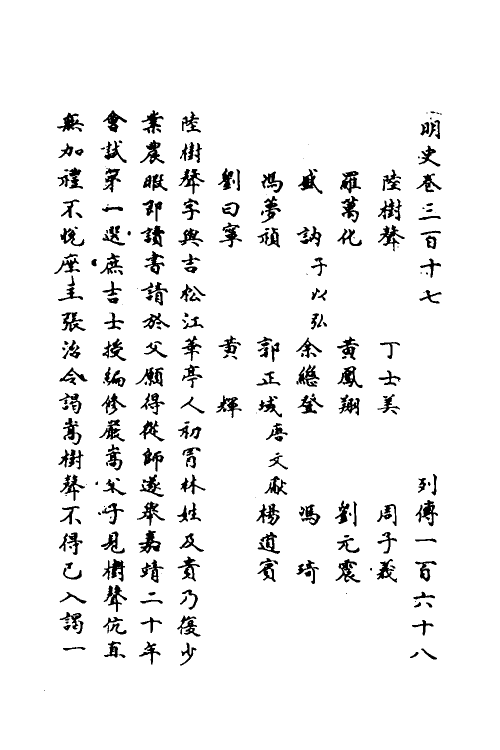 明史卷三百十七　列傳一百六十八
陸樹聲　丁士美　周子義
羅萬化　黃鳳翔　劉元震
盛訥子以弘　余繼登　馮琦
馮夢禎　郭正域唐文献　楊道賓
劉曰寧　黃輝
陸樹聲字與吉松江華亭人初冐林姓及貴乃復少
業農暇即讀書請於父願得從師遂舉嘉靖二十年
會試第一選庶吉士授編修嚴嵩父子見樹聲伉直
無加禮不悅座主張治令謁嵩樹聲不得已入謁一